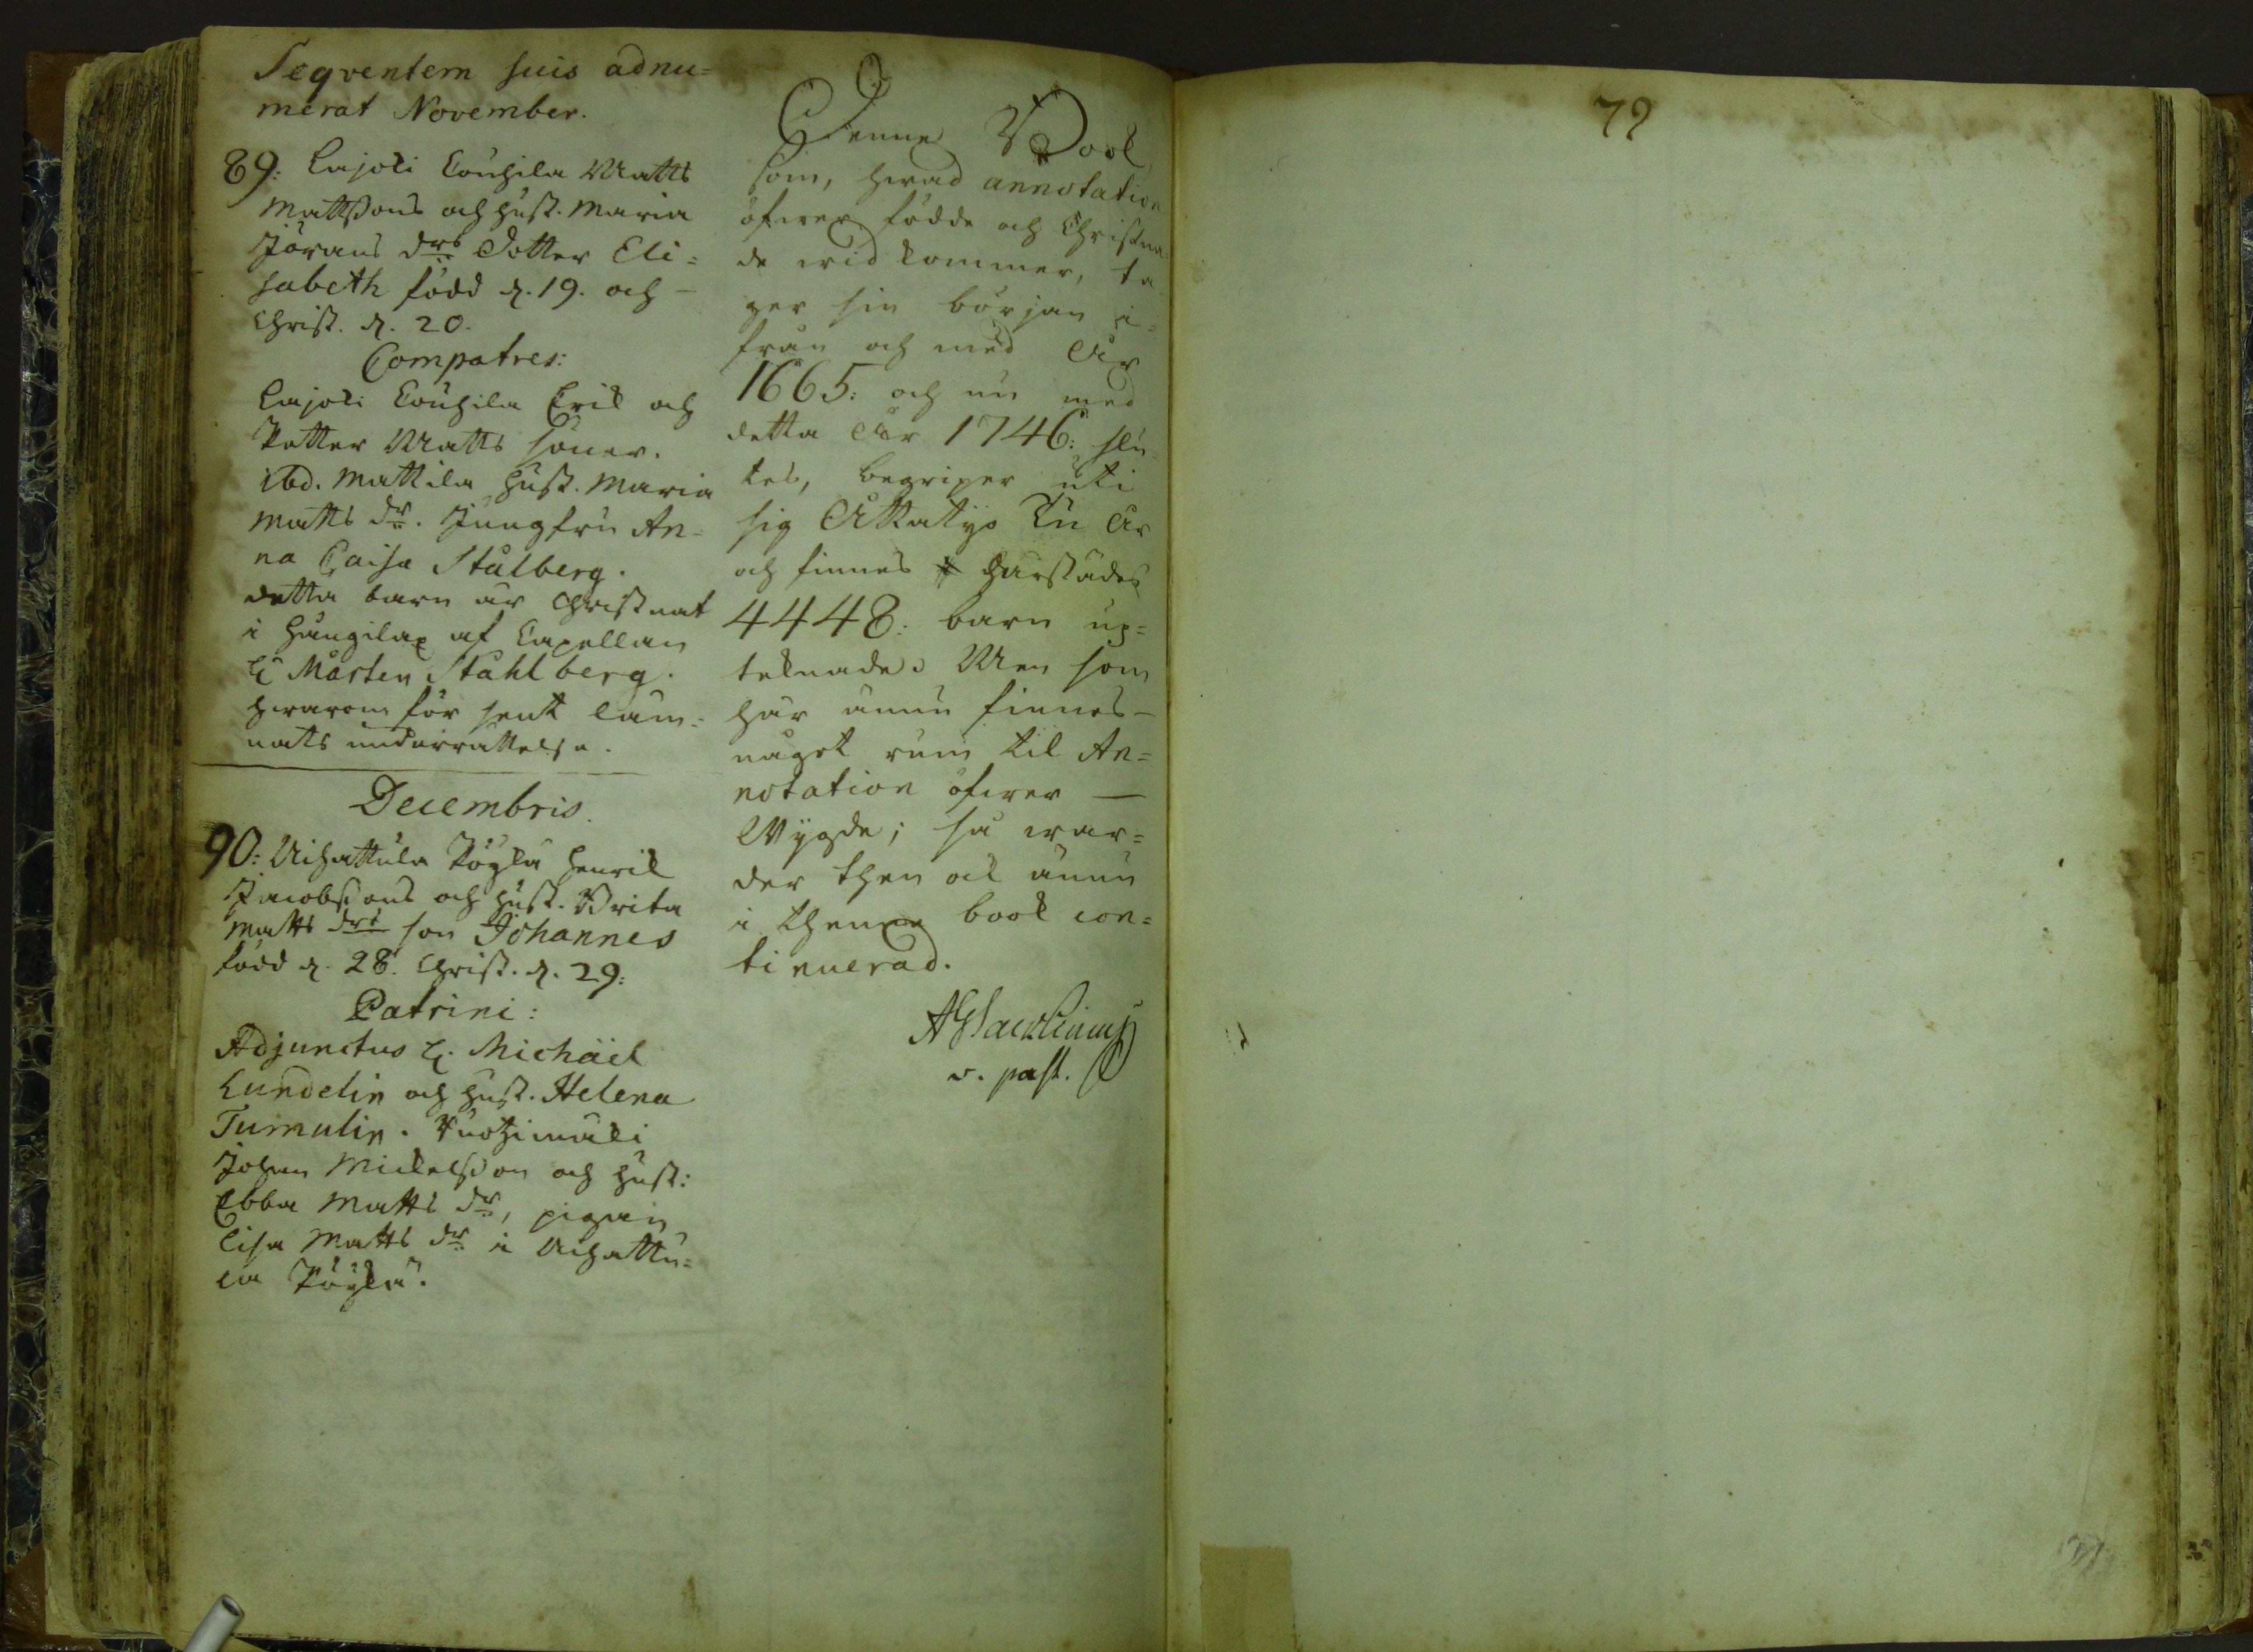 Seqventem suis adnu=
merat November.
89: Lajoki Couhila Matts
Mattsons och hust. Maria
Jörans drs dotter Eli=
sabeth född d. 19. och
Christ. d. 20.
Compatres:
Lajoki Couhila Erik och
Petter Matts söner.
ibd. Mattila hust. Maria
Matts dr. Jungfru An=
na Caisa Stålberg.
detta barn är Christnat
i af Capellan
H Mårten Ståhlberg.
hwarom för sent läm=
nats underrättelse.
Decembris.
90: Uihattula Pöylä Henrik
Jacobsons och hust. Brita
Matts drs son Johannes
född d. 28. Christ. d. 29:
Patrini:
Adjunctus H. Michäel
Lundelin och hust. Helena
Tumulin.
Johan Mickelson och hust:
Ebba Matts dr, pigan
Lisa Matts dr i Uihattu=
la Pöylä.
Denna Book
som, hwad annotation
öfwer födde och Christna=
de wid kommer, ta
ger sin början i=
från och med År
1665: och nu med
detta År 1746: slu=
tes, begriper uti
sig Ottatijo Tu År
och finnes härstädes
4448: barn up=
teknade: Men som
här ännu finnes
något rum til An=
notation öfwer
Wygde; så war=
der then ock ännu
i thenna book con=
tinuerad.
v. past.
79